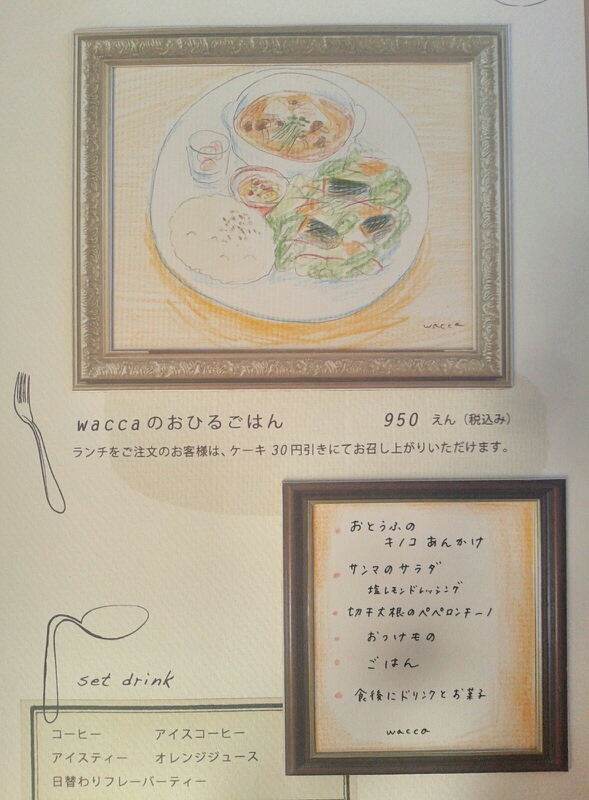 wacca
waccaのおひるごはん 950 えん（税込み）
ランチをご注文のお客様は、ケーキ30円引きにてお召し上がりいただけます。
おとうふの
キノコ あんかけ
サンマのサラダ
塩レモンドレッシング
切干大根のペペロンチーノ
おつけもの
ごはん
食後にドリンクとお菓子
wacca
set drink
コーヒー アイスコーヒー
アイスティー オレンジジュース
日替わりフレーバーティー